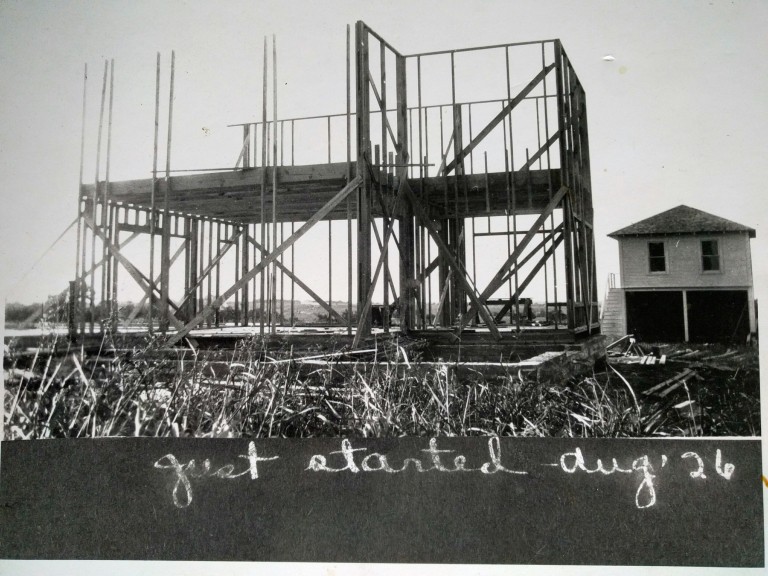 just started - aug '26